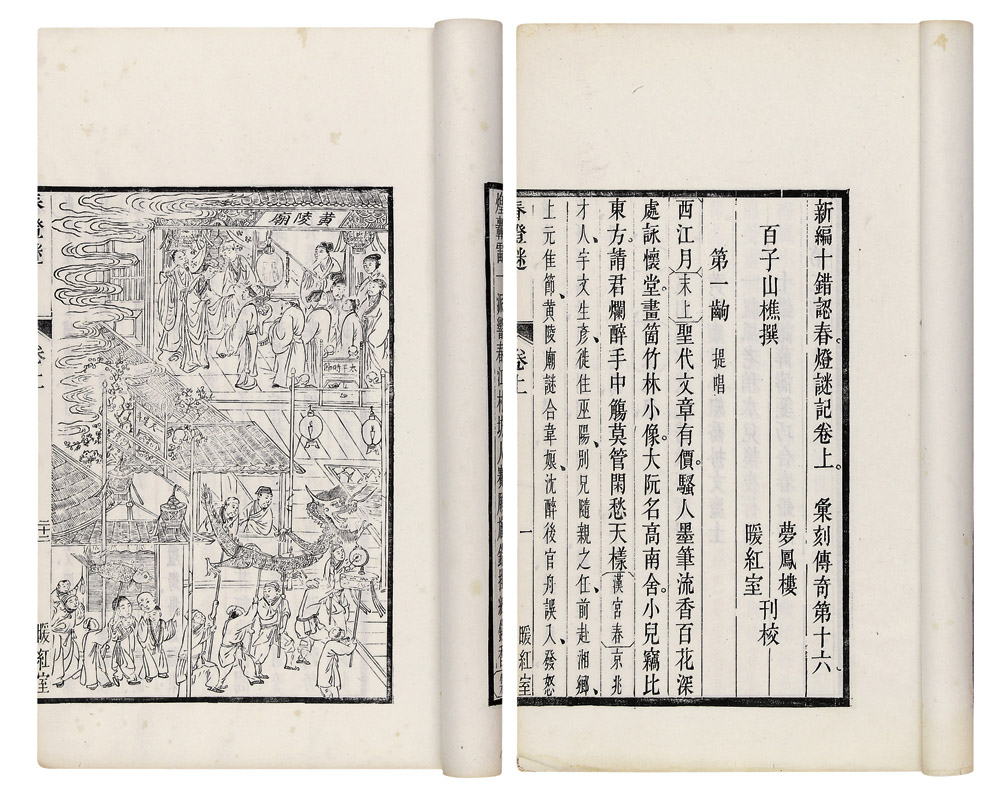 新編十錯認春燈謎記卷上。 彙刻傳奇第十六
夢鳳樓
暖紅室
刊校
百子山樵撰
第一齣 提唱
西江月末上聖代文章有價。騷人墨筆流香百花深
處詠懷堂。畫箇竹林小像。大阮名高南舍。小兒竊比
東方。請君爛醉手中觴莫管閑愁天樣漢宮春京兆
才人、宇文生彥、徙住巫陽、別兄隨親之任前赴湘鄉、
上元隹節、黃陵廟謎合韋娘、沈醉後官舟誤入、發怒
春燈謎
卷上
一
暖紅室
黃陵廟
春燈謎
卷上
暖紅室